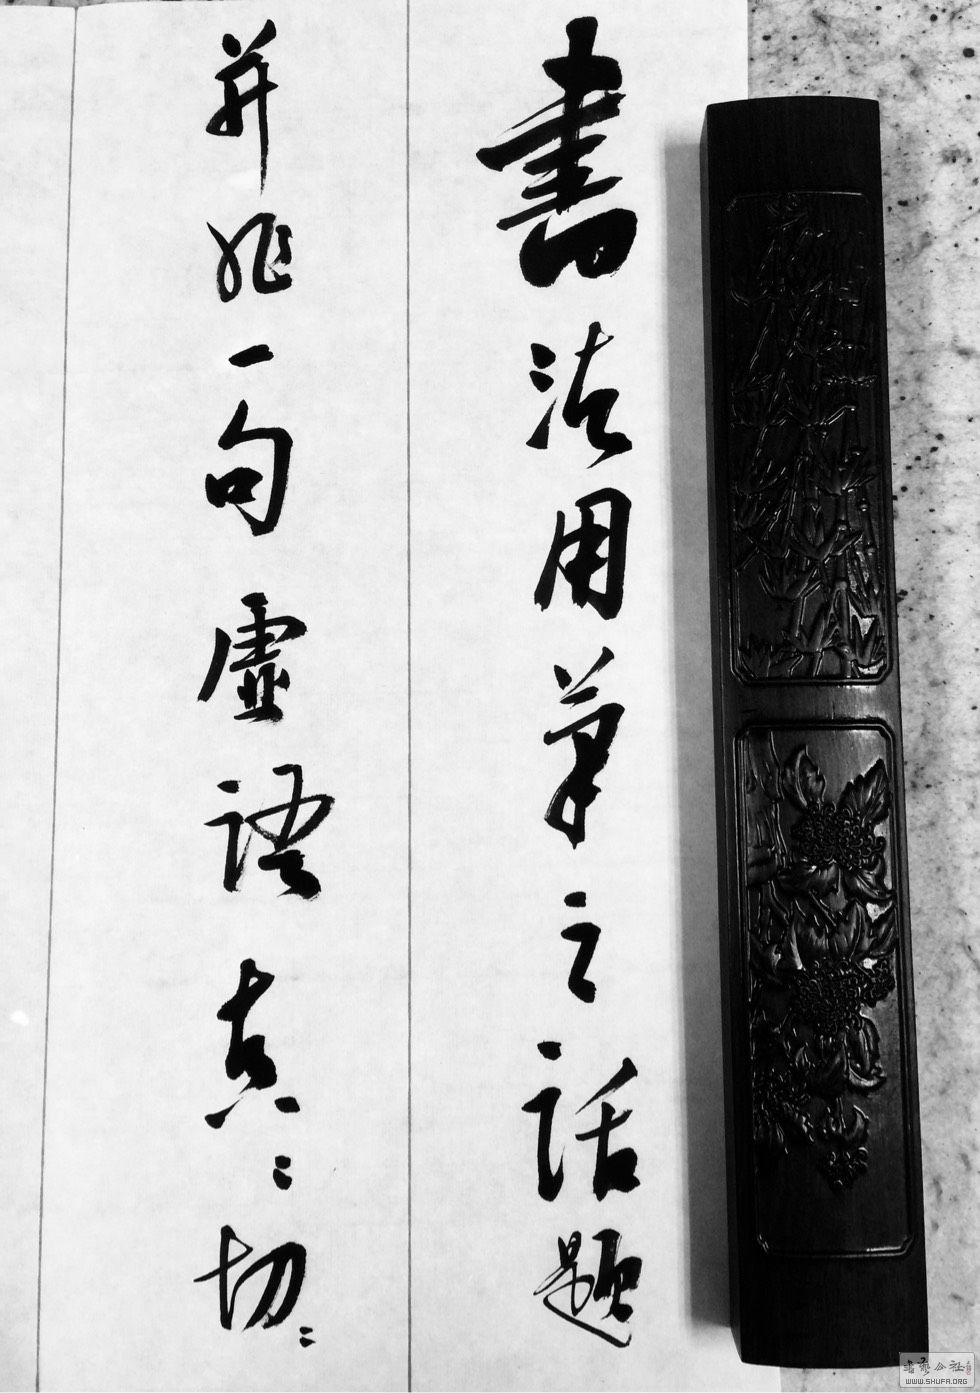 書法用筆之話題
并非一句虛語真〻切〻
書艺公社
WWW.SHUFA.ORG